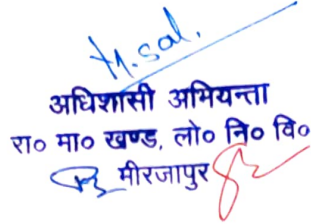 अधिशासी अभियन्ता
रा० मा० खण्ड, लो० नि० वि०
मीरजापुर